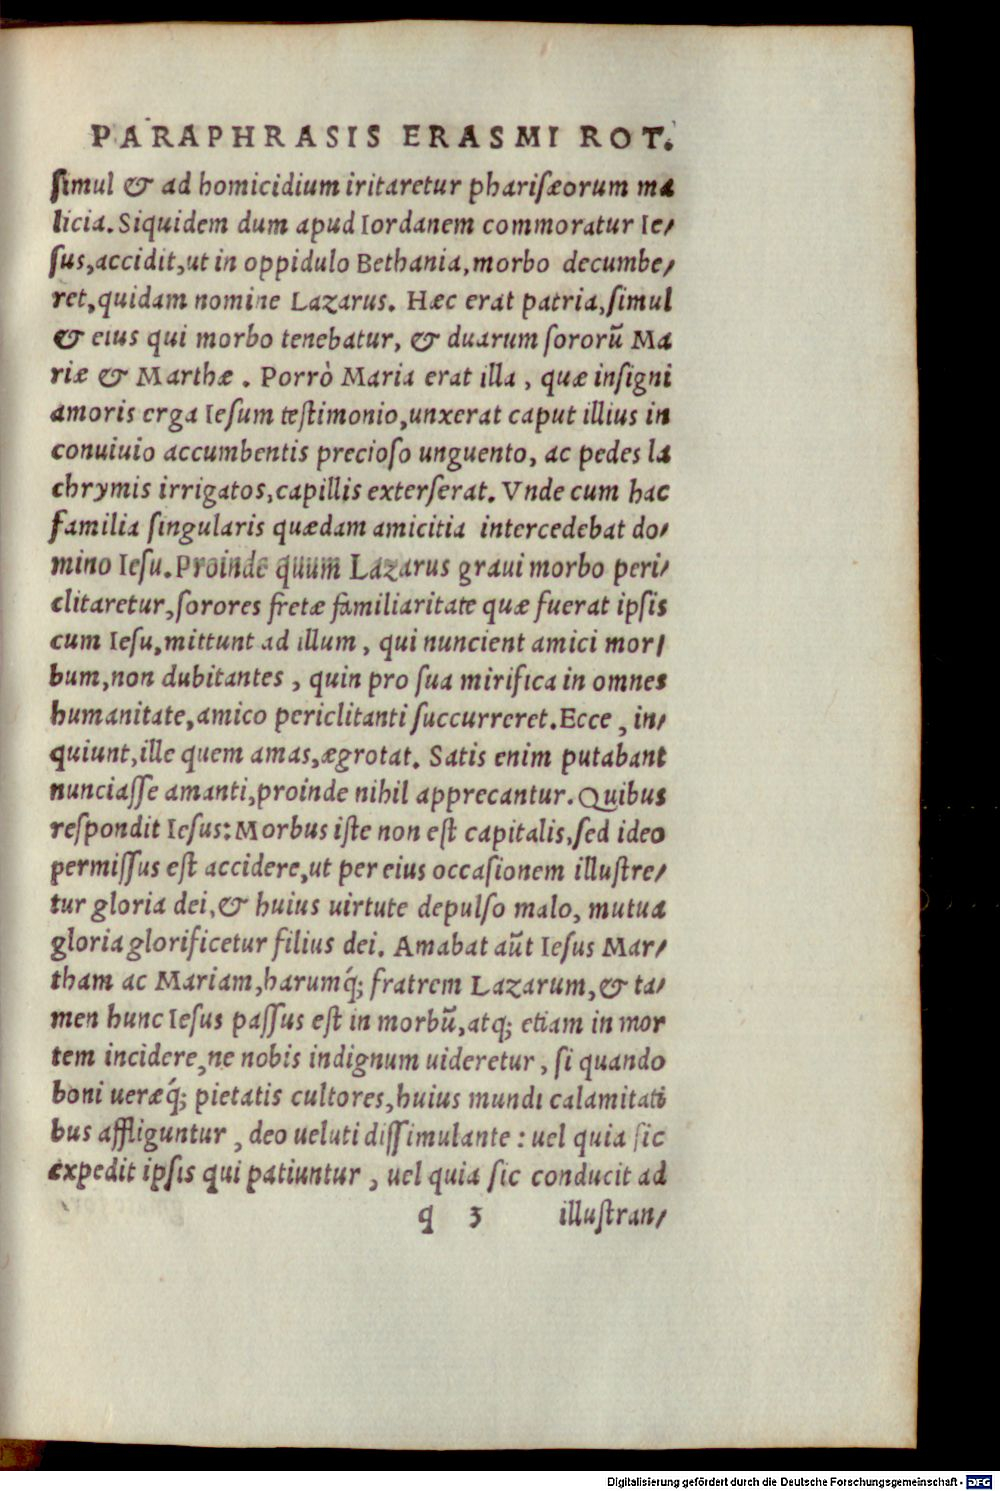 PARAPHRASIS ERASMI ROT.
ſimul & ad homicidium iritaretur phariſæorum ma
licia. Siquidem dum apud Iordanem commoratur Ie/
ſus, accidit, ut in oppidulo Bethania, morbo decumbe/
ret, quidam nomine Lazarus. Hæc erat patria, ſimul
& eius qui morbo tenebatur, & duarum ſororũ Ma
riæ & Marthæ. Porrò Maria erat illa, quæ inſigni
amoris erga Ieſum teſtimonio, unxerat caput illius in
conuiuio accumbentis precioſo unguento, ac pedes la
chrymis irrigatos, capillis exterſerat. Vnde cum hac
familia ſingularis quædam amicitia intercedebat do/
mino Ieſu. Proinde quum Lazarus graui morbo peri/
clitaretur, ſorores fretæ familiaritate quæ fuerat ipſis
cum Ieſu, mittunt ad illum, qui nuncient amici mor/
bum, non dubitantes, quin pro ſua mirifica in omnes
humanitate, amico periclitanti ſuccurreret. Ecce, in/
quiunt, ille quem amas, ægrotat. Satis enim putabant
nunciaſſe amanti, proinde nihil apprecantur. Quibus
reſpondit Ieſus: Morbus iſte non eſt capitalis, ſed ideo
permiſſus eſt accidere, ut per eius occaſionem illuſtre/
tur gloria dei, & huius uirtute depulſo malo, mutua
gloria glorificetur filius dei. Amabat aũt Ieſus Mar/
tham ac Mariam, harumq́; fratrem Lazarum, & ta/
men hunc Ieſus paſſus eſt in morbũ, atq; etiam in mor
tem incidere, ne nobis indignum uideretur, ſi quando
boni ueræq́; pietatis cultores, huius mundi calamitati
bus affliguntur, deo ueluti diſſimulante: uel quia ſic
expedit ipſis qui patiuntur, uel quia ſic conducit ad
q 3 illuſtran/
Digitalisierung gefördert durch die Deutsche Forschungsgemeinschaft - DFG